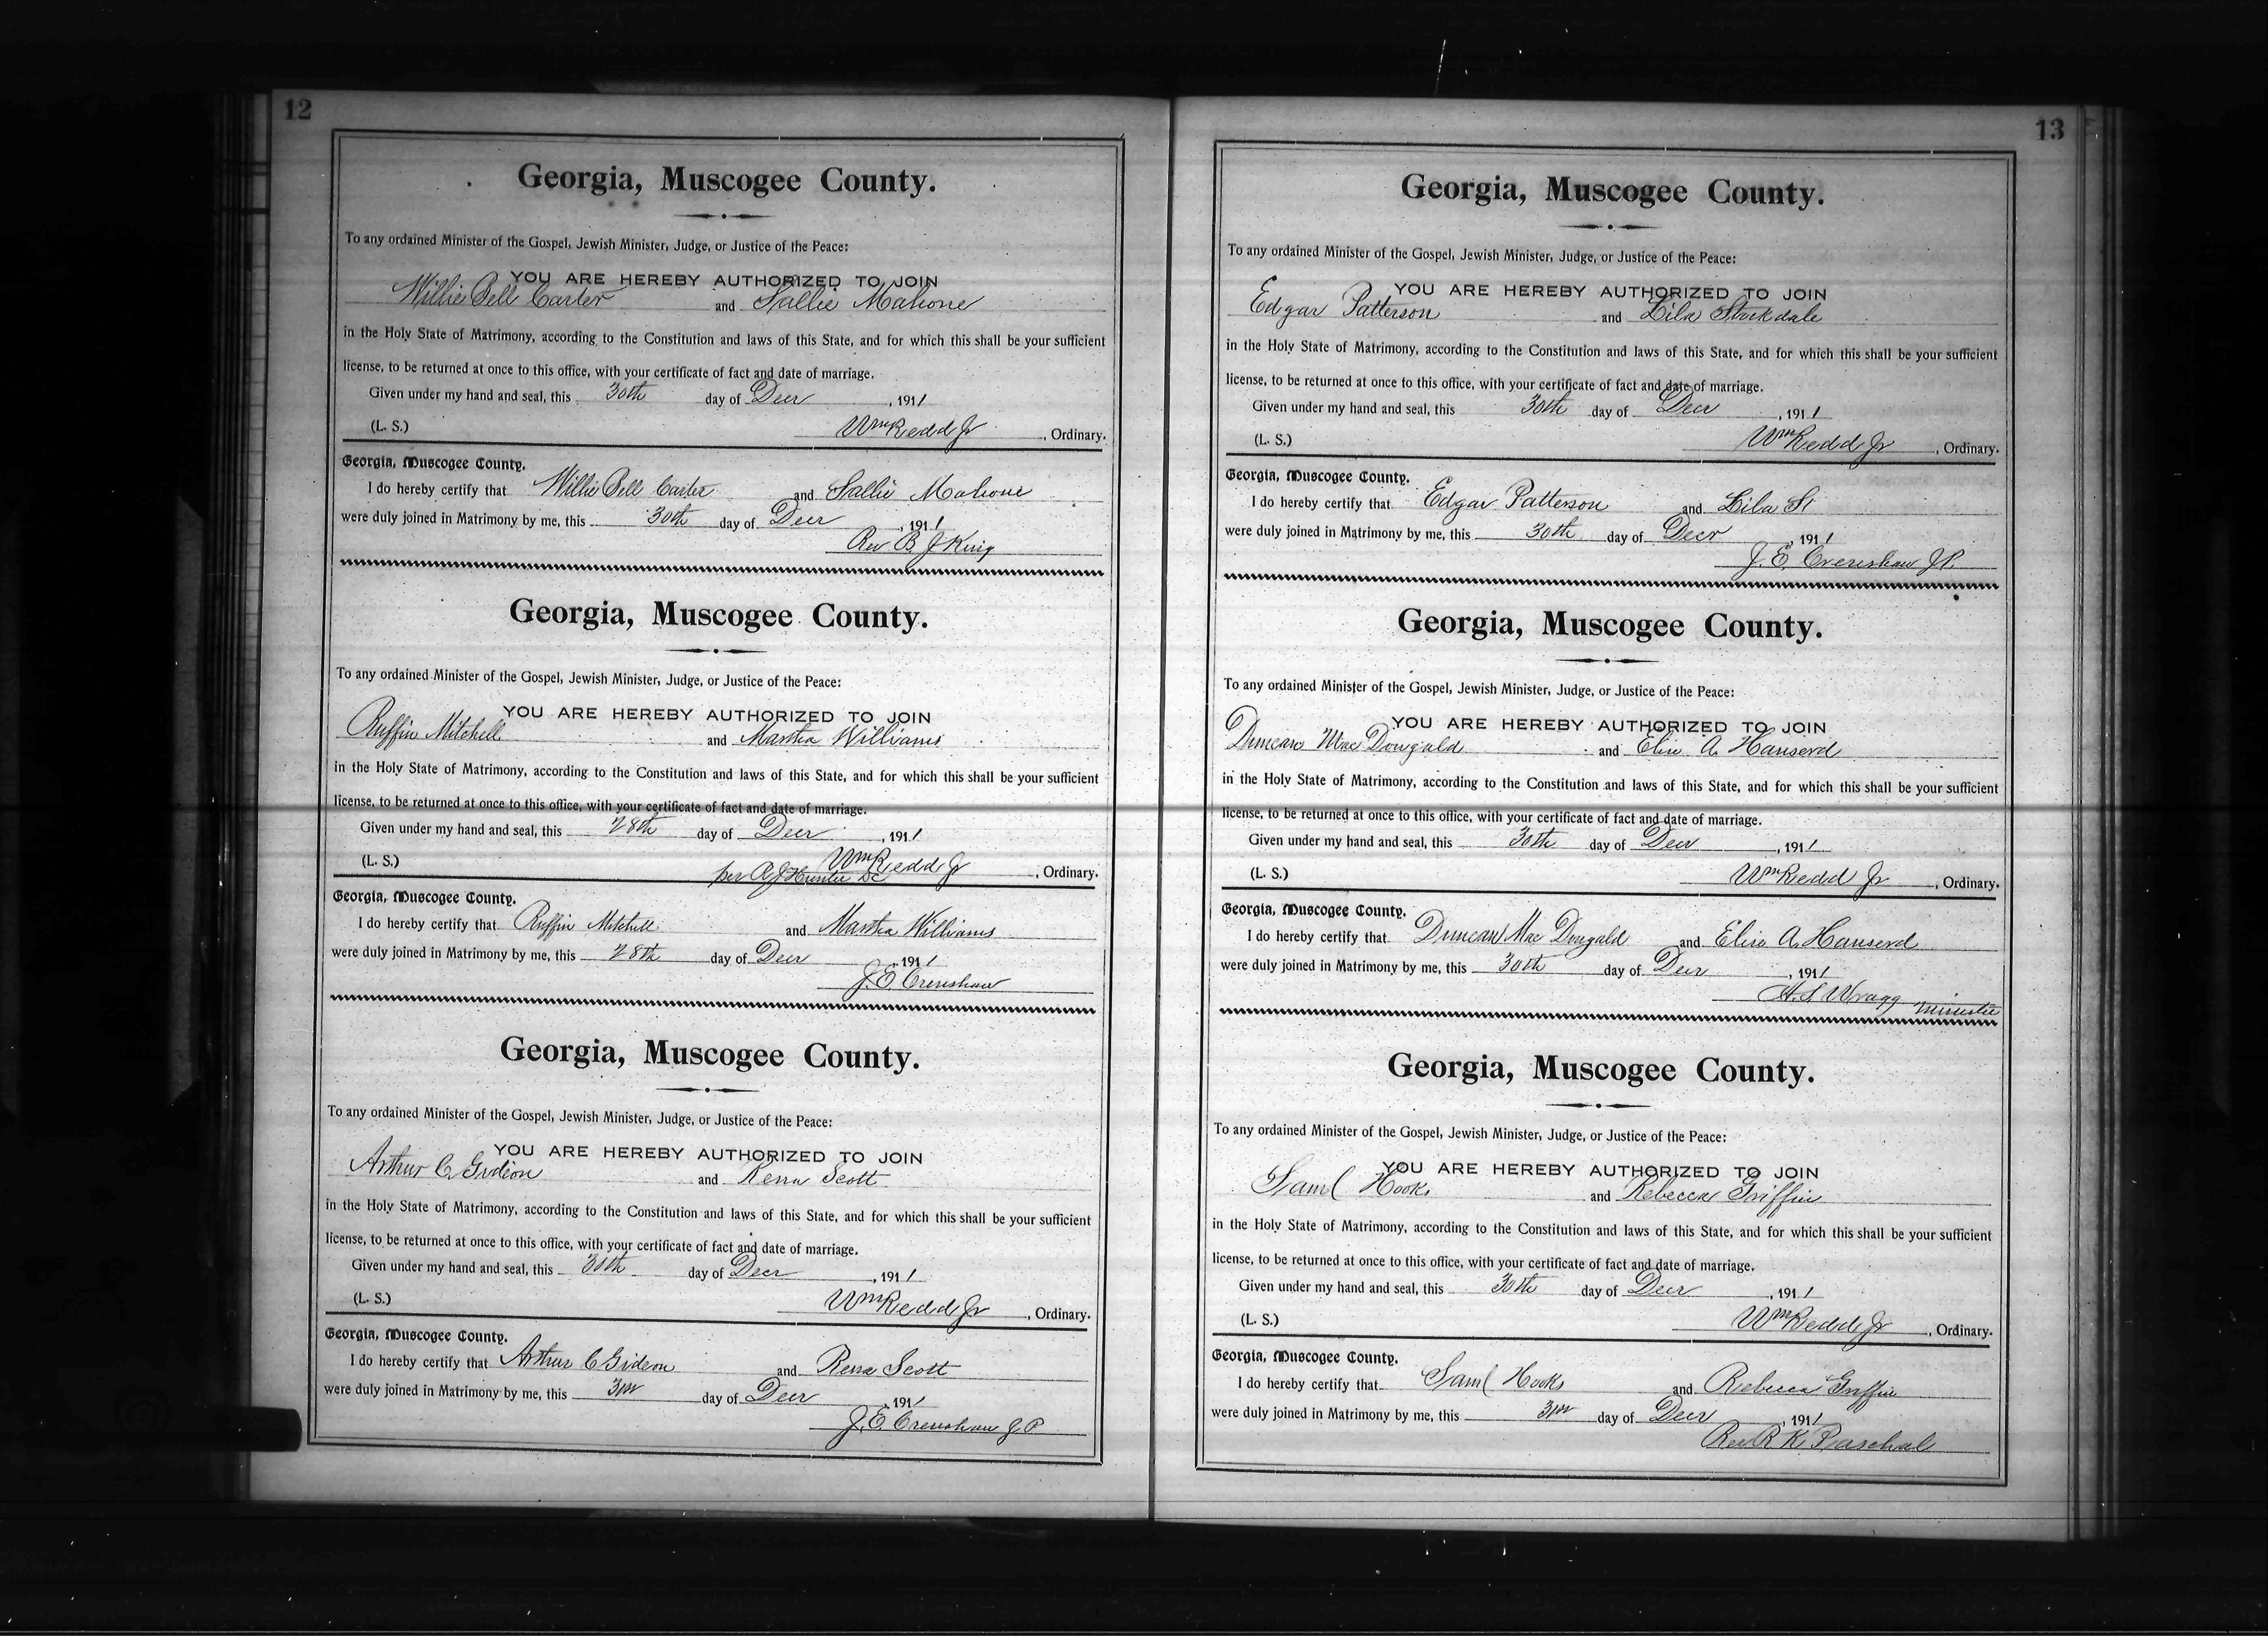 12
Georgia, Muscogee County.
To any ordained Minister of the Gospel, Jewish Minister, Judge, or Justice of the Peace:
YOU ARE HEREBY AUTHORIZED TO JOIN
Willie Bell Carter and Sallie Mahone
in the Holy State of Matrimony, according to the Constitution and laws of this State, and for which this shall be your sufficient
license, to be returned at once to this office, with your certificate of fact and date of marriage.
Given under my hand and seal, this 30th day of Decr, 1911
(L. S.) Wm Redd Jr, Ordinary.
Georgia, Muscogee County.
I do hereby certify that Willie Bell Carter and Sallie Mahone
were duly joined in Matrimony by me, this 30th day of Decr, 1911
Rev B J King
Georgia, Muscogee County.
To any ordained Minister of the Gospel, Jewish Minister, Judge, or Justice of the Peace:
YOU ARE HEREBY AUTHORIZED TO JOIN
Ruffin Mitchell and Martha Williams
in the Holy State of Matrimony, according to the Constitution and laws of this State, and for which this shall be your sufficient
license, to be returned at once to this office, with your certificate of fact and date of marriage.
Given under my hand and seal, this 28th day of Decr, 1911
(L. S.) Wm Redd Jr, Ordinary.
per A J Hunter DC
Georgia, Muscogee County.
I do hereby certify that Ruffin Mitchell and Martha Williams
were duly joined in Matrimony by me, this 28th day of Decr, 1911
J. E. Crenshaw
Georgia, Muscogee County.
To any ordained Minister of the Gospel, Jewish Minister, Judge, or Justice of the Peace:
YOU ARE HEREBY AUTHORIZED TO JOIN
Arthur C Gideon and Rena Scott
in the Holy State of Matrimony, according to the Constitution and laws of this State, and for which this shall be your sufficient
license, to be returned at once to this office, with your certificate of fact and date of marriage.
Given under my hand and seal, this 30th day of Decr, 1911
(L. S.) Wm Redd Jr, Ordinary.
Georgia, Muscogee County.
I do hereby certify that Arthur C Gideon and Rena Scott
were duly joined in Matrimony by me, this 31st day of Decr, 1911
J. E. Crenshaw J P
13
Georgia, Muscogee County.
To any ordained Minister of the Gospel, Jewish Minister, Judge, or Justice of the Peace:
YOU ARE HEREBY AUTHORIZED TO JOIN
Edgar Patterson and Lila Stockdale
in the Holy State of Matrimony, according to the Constitution and laws of this State, and for which this shall be your sufficient
license, to be returned at once to this office, with your certificate of fact and date of marriage.
Given under my hand and seal, this 30th day of Decr, 1911
(L. S.) Wm Redd Jr, Ordinary.
Georgia, Muscogee County.
I do hereby certify that Edgar Patterson and Lila St
were duly joined in Matrimony by me, this 30th day of Decr, 1911
J. E. Crenshaw J.P.
Georgia, Muscogee County.
To any ordained Minister of the Gospel, Jewish Minister, Judge, or Justice of the Peace:
YOU ARE HEREBY AUTHORIZED TO JOIN
Duncan Mac Dougald and Elise A. Hanserd
in the Holy State of Matrimony, according to the Constitution and laws of this State, and for which this shall be your sufficient
license, to be returned at once to this office, with your certificate of fact and date of marriage.
Given under my hand and seal, this 30th day of Decr, 1911
(L. S.) Wm Redd Jr, Ordinary.
Georgia, Muscogee County.
I do hereby certify that Duncan Mac Dougald and Elise A. Hanserd
were duly joined in Matrimony by me, this 30th day of Decr, 1911
H. S. Wragg Minister
Georgia, Muscogee County.
To any ordained Minister of the Gospel, Jewish Minister, Judge, or Justice of the Peace:
YOU ARE HEREBY AUTHORIZED TO JOIN
Saml Hooks and Rebecca Griffin
in the Holy State of Matrimony, according to the Constitution and laws of this State, and for which this shall be your sufficient
license, to be returned at once to this office, with your certificate of fact and date of marriage.
Given under my hand and seal, this 30th day of Decr, 1911
(L. S.) Wm Redd Jr, Ordinary.
Georgia, Muscogee County.
I do hereby certify that Saml Hooks and Rebecca Griffin
were duly joined in Matrimony by me, this 31st day of Decr, 1911
Rev R K Paschal